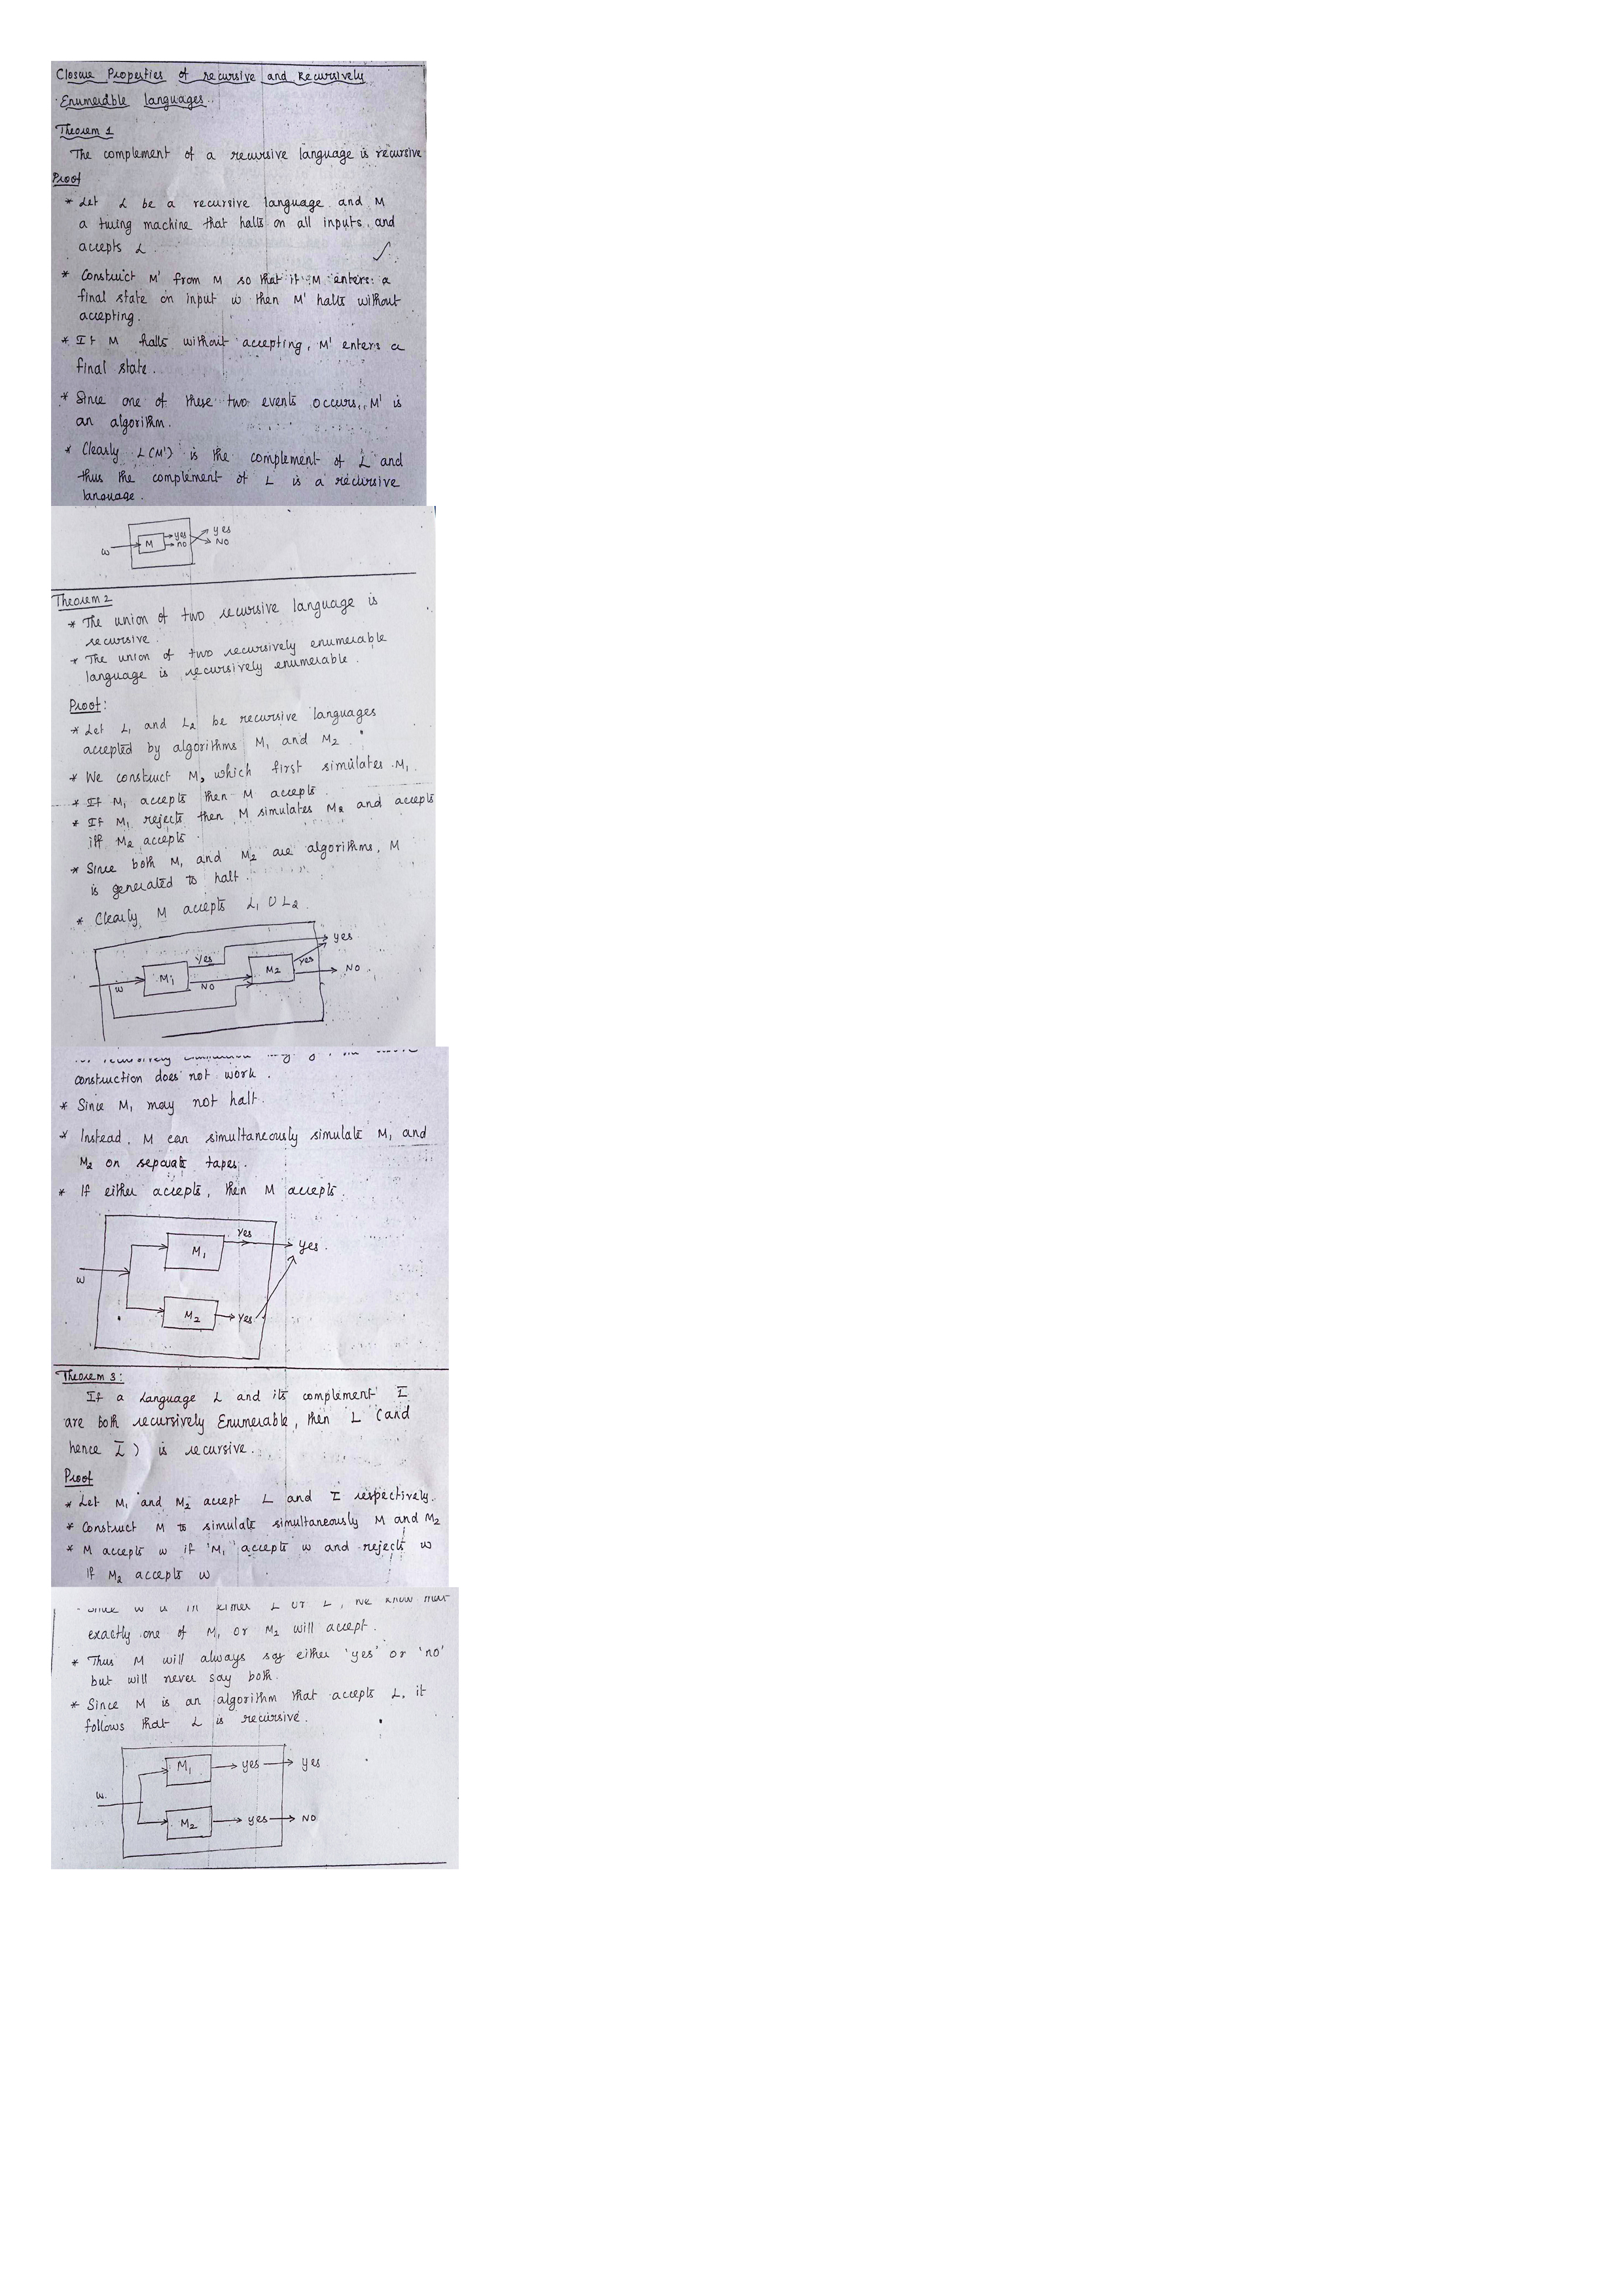 Closure Properties of recursive and Recursively
Enumerable languages.
Theorem 1
The complement of a recursive language is recursive
Proof
* Let L be a recursive language and M
a turing machine that halts on all inputs and
accepts L.
* Construct M' from M so that if M enters a
final state on input w then M' halts without
accepting.
* If M halts without accepting, M' enters a
final state.
* Since one of these two events occurs, M' is
an algorithm.
* Clearly L(M') is the complement of L and
thus the complement of L is a recursive
language.
w M yes no yes NO
Theorem 2
* The union of two recursive language is
recursive.
* The union of two recursively enumerable
language is recursively enumerable.
Proof:
* Let L1 and L2 be recursive languages
accepted by algorithms M1 and M2.
* We construct M, which first simulates M1.
* If M1 accepts then M accepts
* If M1 rejects then M simulates M2 and accepts
iff M2 accepts.
* Since both M1 and M2 are algorithms, M
is generated to halt.
* Clearly M accepts L1 U L2.
w M1 Yes NO M2 Yes yes NO
construction does not work.
* Since M1 may not halt.
* Instead, M can simultaneously simulate M1 and
M2 on separate tapes.
* If either accepts, then M accepts.
w M1 Yes yes.
M2 yes
Theorem 3:
If a Language L and its complement L̅
are both recursively Enumerable, then L (and
hence L̅) is recursive.
Proof
* Let M1 and M2 accept L and L̅ respectively.
* Construct M to simulate simultaneously M and M2
* M accepts w if 'M1' accepts w and rejects w
if M2 accepts w
exactly one of M1 or M2 will accept.
* Thus M will always say either 'yes' or 'no'
but will never say both.
* Since M is an algorithm that accepts L, it
follows that L is recursive.
w M1 yes yes
M2 yes NO